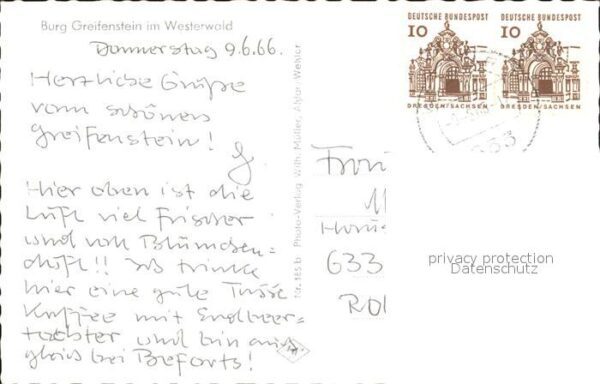 Burg Greifenstein im Westerwald
Donnerstag 9.6.66.
Herzliche Grüße
vom schönen
Greifenstein!
G.
Hier oben ist die
Luft viel frischer
und voll Blümchen=
duft!! Ich trinke
hier eine gute Tasse
Kaffee mit Erdbeer=
und bin
gleich bei
Nr. 185 b Photo-Verlag Wilh. Müller, Aßlar-Wetzlar
DEUTSCHE BUNDESPOST
10
DRESDEN/SACHSEN
DEUTSCHE BUNDESPOST
10
DRESDEN/SACHSEN
633
privacy protection
Datenschutz